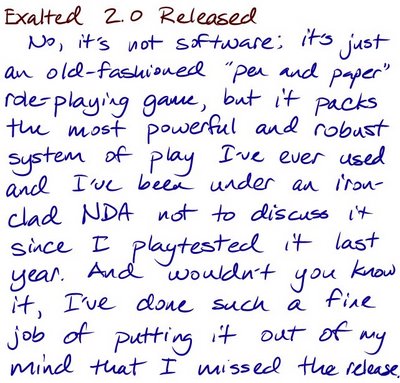 Exalted 2.0 Released
No, it's not software; it's just
an old-fashioned "pen and paper"
role-playing game, but it packs
the most powerful and robust
system of play I've ever used
and I've been under an iron-
clad NDA not to discuss it
since I playtested it last
year. And wouldn't you know
it, I've done such a fine
job of putting it out of my
mind that I missed the release